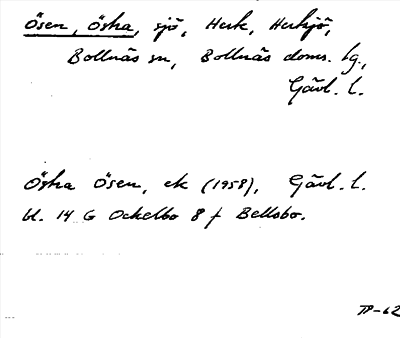 Ösen, Östra, sjö, Herk, Herksjö,
Bollnäs sn, Bollnäs doms. lg.,
Gävl. l.
Östra Ösen, ek (1958), Gävl. l.
bl. 14 G Ockelbo 8 f Bellsbo.
TP-62